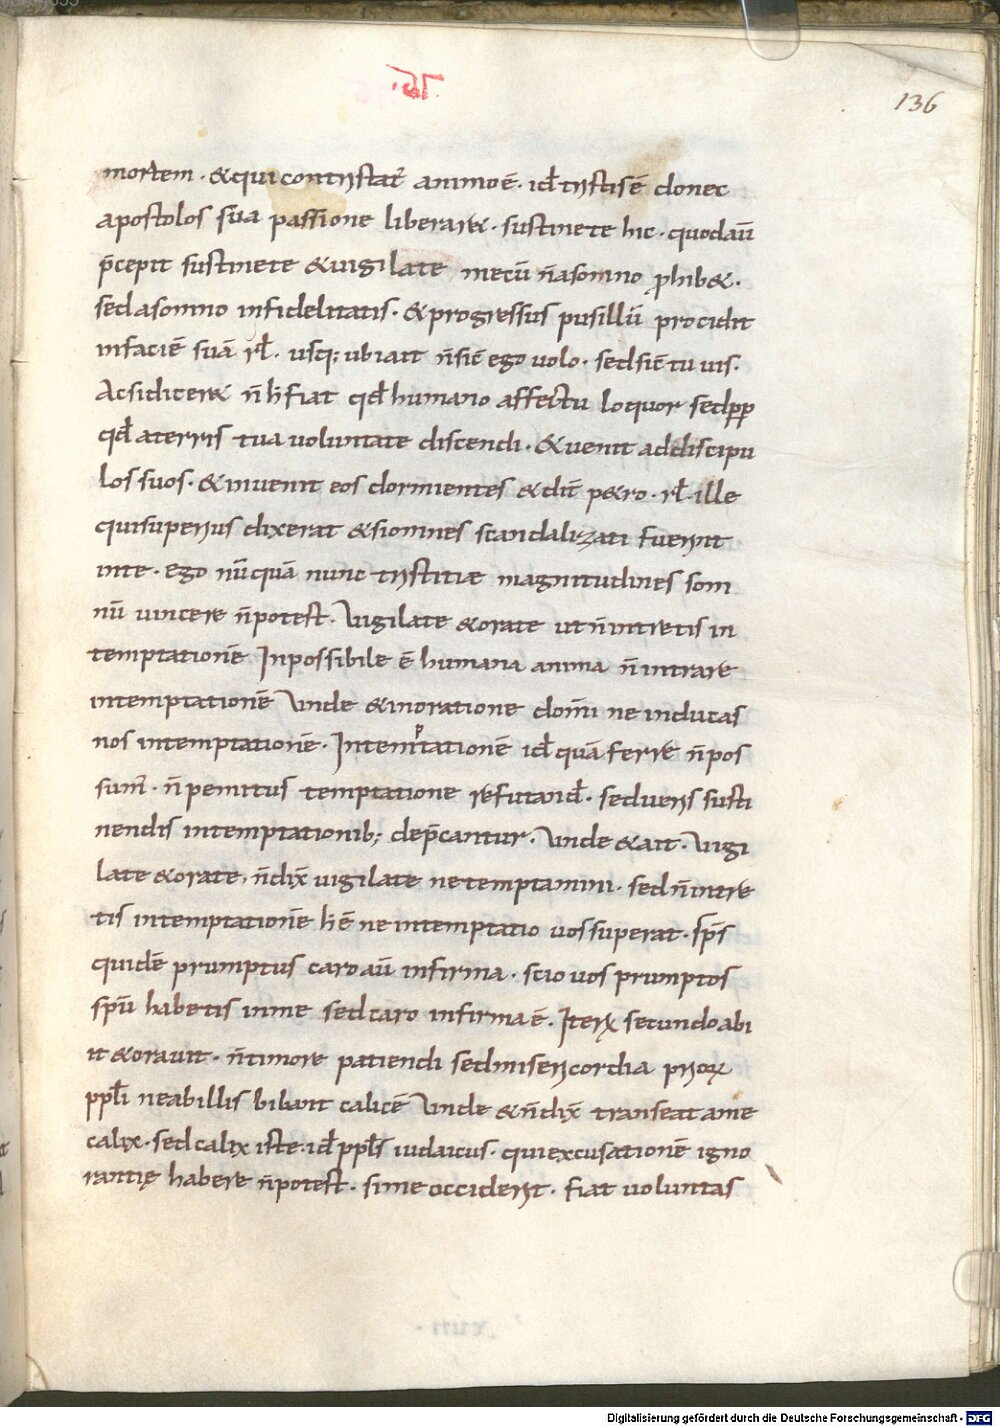 136
mortem · &qui contristat̄ animo ē · id̄ tristis ē donec
apostolos sua passione liberar& · sustinete hic · quod aū
p̄cepit sustinete & uigilate mecū n̄ a somno ꝓhib& ·
sed a somno infidelitatis · & progressus pusillū procidit
in faciē suā rł · usq; ubi ait n̄ sic̄ ego uolo · sed sic̄ tu uis ·
Ac si dicer& n̄ h̄ fiat qd̄ humano affectu loquor sed ꝓp
qd̄ a terris tua uoluntate discendi · & uenit ad discipu
los suos · & inuenit eos dormientes & dix̄ p&ro · rł · ille
qui superius dixerat & si omnes scandalizati fuerint
in te · ego nūquā nunc tristitiæ magnitudines som
nū uincere n̄ potest · Vigilate & orate ut n̄ intretis in
temptationē Inpossibile ē humana anima n̄ intrare
in temptationē Vnde & in oratione domīni ne inducas
nos in temptationē · In temptationē id̄ quā ferre n̄ pos
sum̄ · n̄ penitus temptatione refutand̄ · sed uers susti
nendis in temptationib; dep̄cantur · Vnde & ait · Vigi
late & orate · n̄ dix̄ uigilate ne temptamini · sed n̄ intre
tis in temptationē h̄ ē ne in temptatio uos superat · sp̄s
quidē prumptus caro aū infirma · scio uos prumptos
sp̄u habetis in me sed caro infirma ē · Iterꝝ secundo abi
it & orauit · n̄ timore patiendi sed misericordia prioꝝ
ppłi ne ab illis bibant calicē Vnde & n̄ dix̄ transeat a me
calix · sed calix iste · id̄ ppłs iudaicus · qui excusationē igno
rantię habere n̄ potest · si me occider̄t · fiat uoluntas
Digitalisierung gefördert durch die Deutsche Forschungsgemeinschaft - DFG